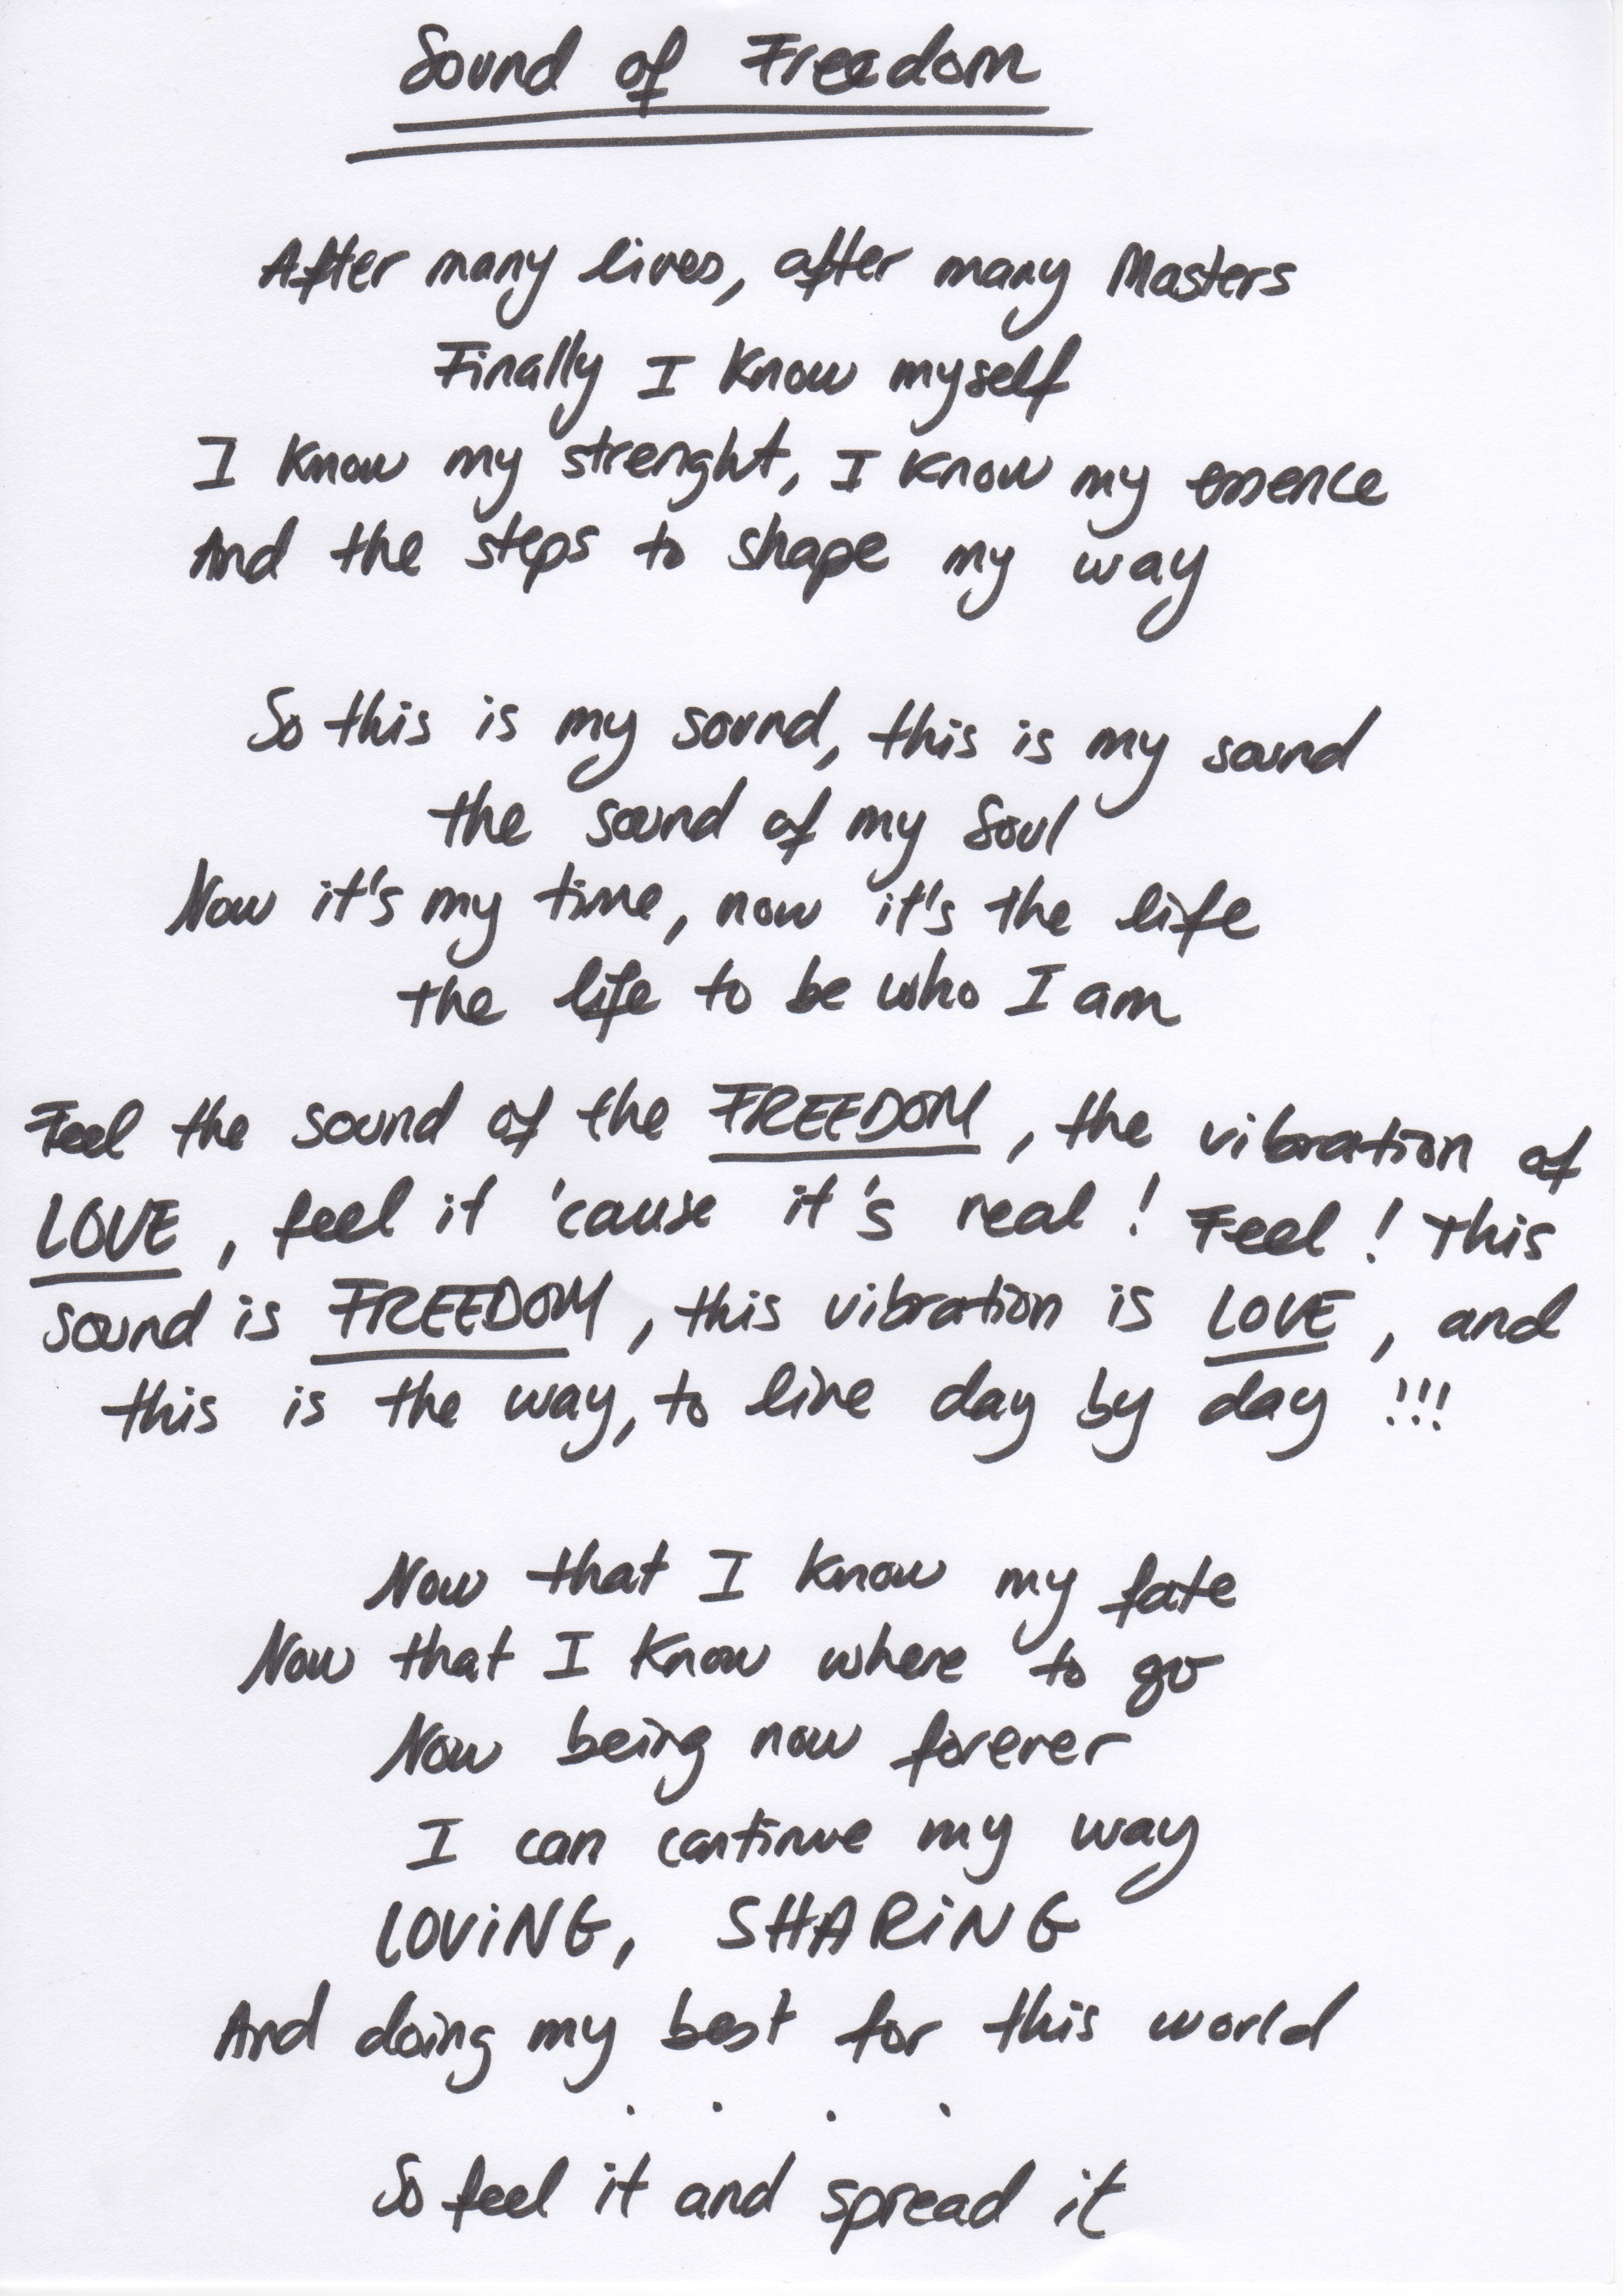 Sound of Freedom
After many lives, after many Masters
Finally I know myself
I know my strenght, I know my essence
And the steps to shape my way
So this is my sound, this is my sound
the sound of my Soul
Now it's my time, now it's the life
the life to be who I am
Feel the sound of the FREEDOM, the vibration of
LOVE, feel it 'cause it's real! Feel! This
sound is FREEDOM, this vibration is LOVE, and
this is the way, to live day by day!!!
Now that I know my fate
Now that I know where to go
Now being now forever
I can continue my way
LOViNG, SHARiNG
And doing my best for this world
. . . .
So feel it and spread it